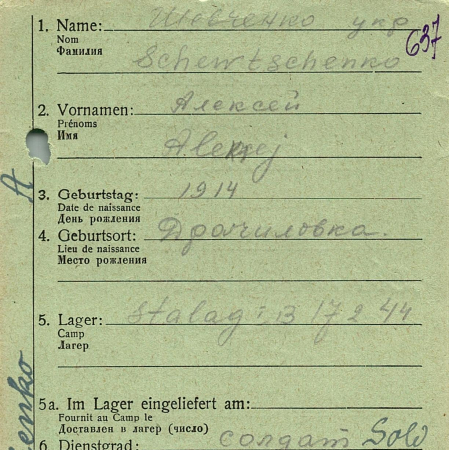 1. Name: Шевченко укр
Nom
Фамилия
Schewtschenko
637
2. Vornamen: Алексей
Prénoms
Имя
Alexej
3. Geburtstag: 1914
Date de naissance
День рождения
4. Geburtsort: Драчиловка.
Lieu de naissance
Место рождения
5. Lager: Stalag: B 172 44
Camp
Лагер
5a. Im Lager eingeliefert am:
Fournit au Camp le
Доставлен в лагер (число)
6. Dienstgrad: солдат Sold